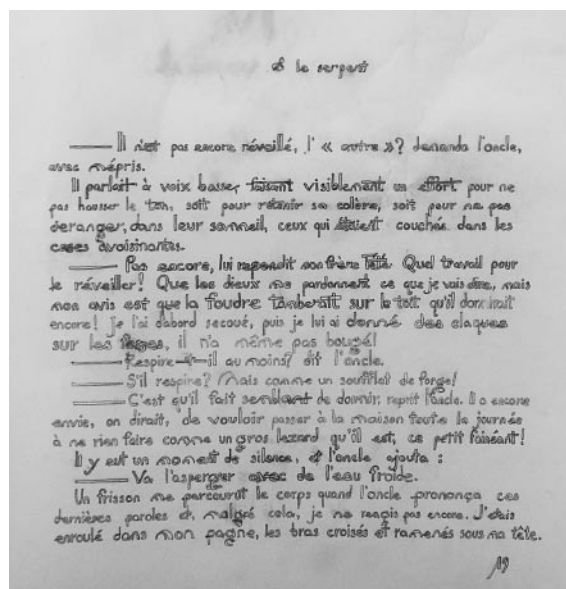 le serpent
— Il n'est pas encore réveillé, l' « autre »? demanda l'oncle,
avec mépris.
Il parlait à voix basse, faisant visiblement un effort pour ne
pas hausser le ton, soit pour retenir sa colère, soit pour ne pas
deranger, dans leur sommeil, ceux qui étaient couchés dans les
cases avoisinantes.
— Pas encore, lui repondit son frère Tètè. Quel travail pour
le réveiller! Que les dieux me pardonnent ce que je vais dire, mais
mon avis est que la foudre tomberait sur le toit qu'il dormirait
encore! je l'ai d'abord secoué, puis je lui ai donné des claques
sur les fesses, il n'a même pas bougé!
— Respire-t-il au moins? dit l'oncle.
— S'il respire? Mais comme un soufflet de forge!
— C'est qu'il fait semblant de dormir, reprit l'oncle. Il a encore
envie, on dirait, de vouloir passer à la maison toute la journée
à ne rien faire comme un gros lezard qu'il est, ce petit fainéant!
Il y eut un moment de silence, et l'oncle ajouta :
— Va l'asperger avec de l'eau froide.
Un frisson me parcourut le corps quand l'oncle prononça ces
dernières paroles et, malgré cela, je ne reagis pas encore. J'étais
enroulé dans mon pagne, les bras croisés et ramenés sous ma tête.
19